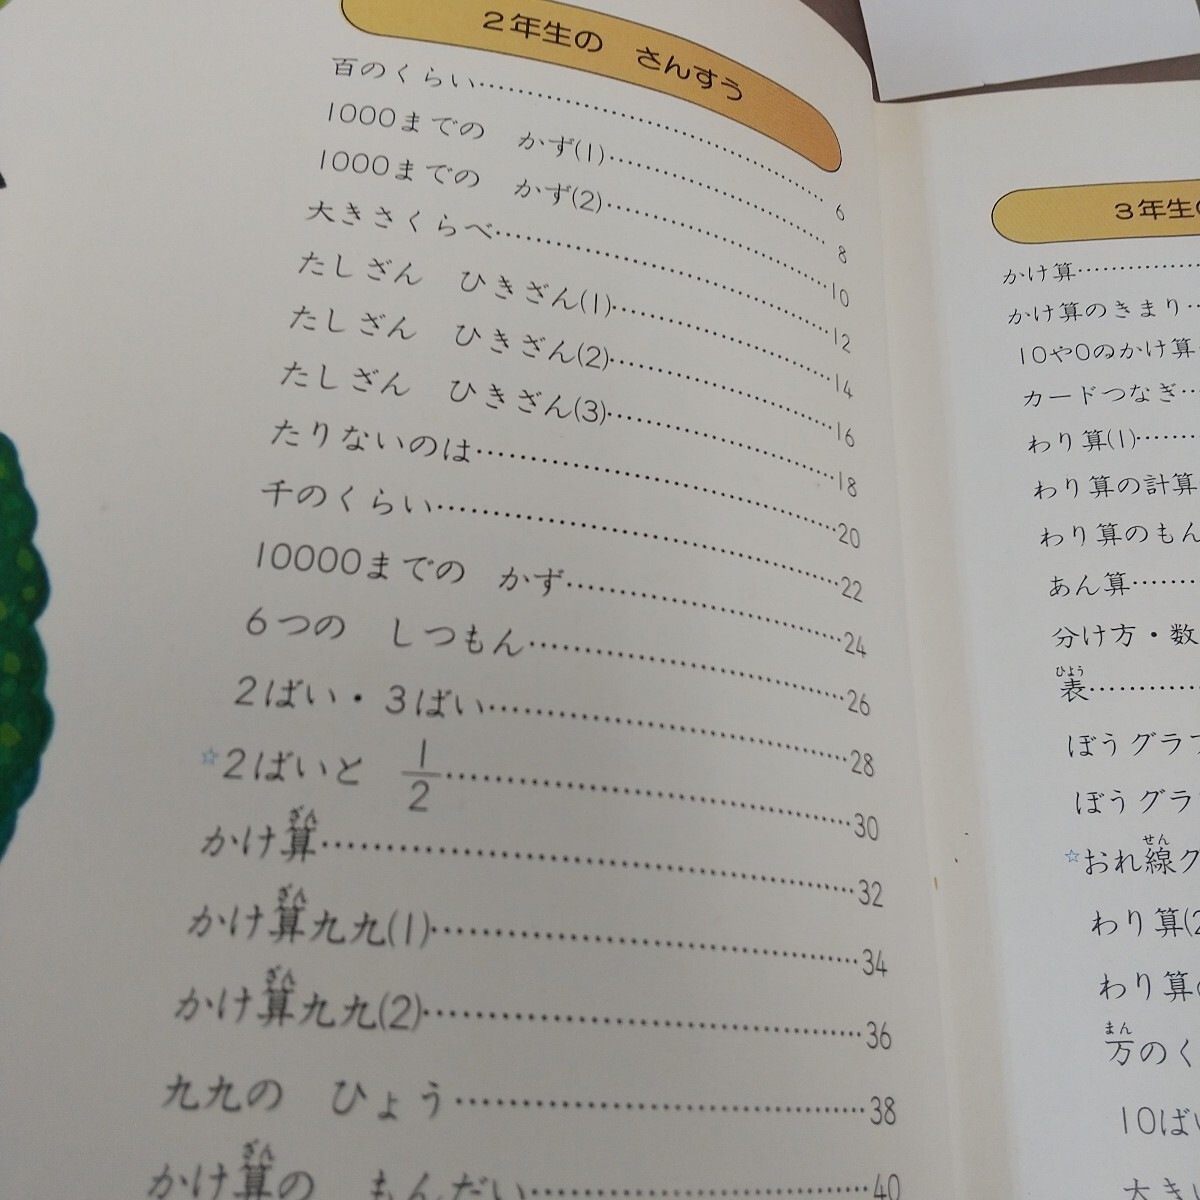 2年生の さんすう
百のくらい……6
1000までの かず(1)……8
1000までの かず(2)……10
大きさくらべ……12
たしざん ひきざん(1)……14
たしざん ひきざん(2)……16
たしざん ひきざん(3)……18
たりないのは……20
千のくらい……22
10000までの かず……24
6つの しつもん……26
2ばい・3ばい……28
☆2ばいと 1/2……30
かけ算……32
ざん
かけ算九九(1)……34
ざん
かけ算九九(2)……36
ざん
九九の ひょう……38
かけ算の もんだい……40
ざん
3年生の
かけ算……
かけ算のきまり……
10や0のかけ算
カードつなぎ……
わり算(1)……
わり算の計算
わり算のもん
あん算……
分け方・数
表……
ひょう
ぼうグラフ
ぼうグラ
☆おれ線グ
せん
わり算(2
わり算の
万のく
まん
10ばい
大きい